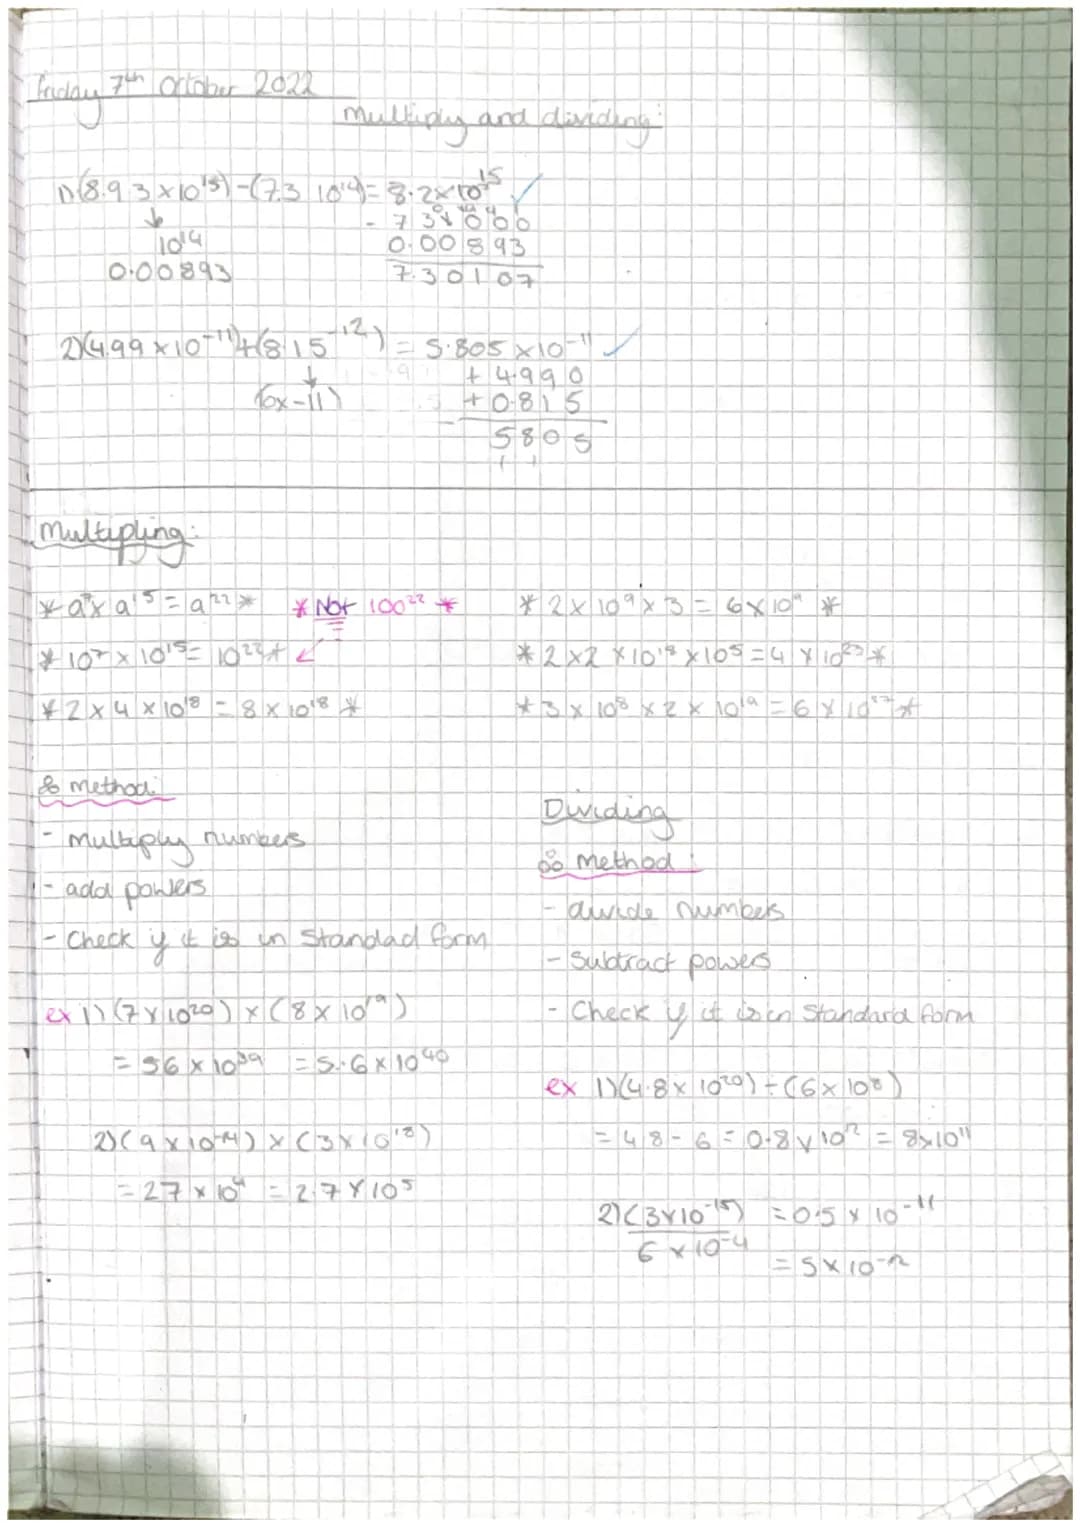 Friday 7th October 2022
Multiply and dividing:
1) (8.93 × 10¹⁵) - (7.3 10¹⁴) = 8.2 × 10¹⁵ ✓
↓
10¹⁴
0.00893
0.00893
7.30107
2) (4.99 × 10⁻¹¹) + (8.15⁻¹²) = 5.805 × 10⁻¹¹ ✓
↓
(ox-11)
+ 4.990
+ 0.815
5805
1 1
Multipling:
* a⁷ × a¹⁵ = a²² * * Not 100²² *
* 10⁷ × 10¹⁵ = 10²² *
* 2 × 4 × 10¹⁸ = 8 × 10¹⁸ *
* 2 × 10⁹ × 3 = 6 × 10⁹ *
* 2 × 2 × 10¹⁸ × 10⁵ = 4 × 10²³ *
* 3 × 10⁸ × 2 × 10¹⁹ = 6 × 10²⁷ *
& method:
- multiply numbers
- add powers
- Check if it is in Standad form
ex 1) (7 × 10²⁰) × (8 × 10¹⁹)
= 56 × 10³⁹ = 5.6 × 10⁴⁰
2) (9 × 10⁻¹⁴) × (3 × 10¹⁸)
= 27 × 10⁴ = 2.7 × 10⁵
Dividing
method:
- divide numbers
- Subtract powers
- Check if it is in Standard form
ex 1) (4.8 × 10²⁰) ÷ (6 × 10⁸)
= 4.8 - 6 = 0.8 × 10¹² = 8 × 10¹¹
2) (3 × 10⁻¹⁵) = 0.5 × 10⁻¹¹
6 × 10⁻⁴
= 5 × 10⁻¹²